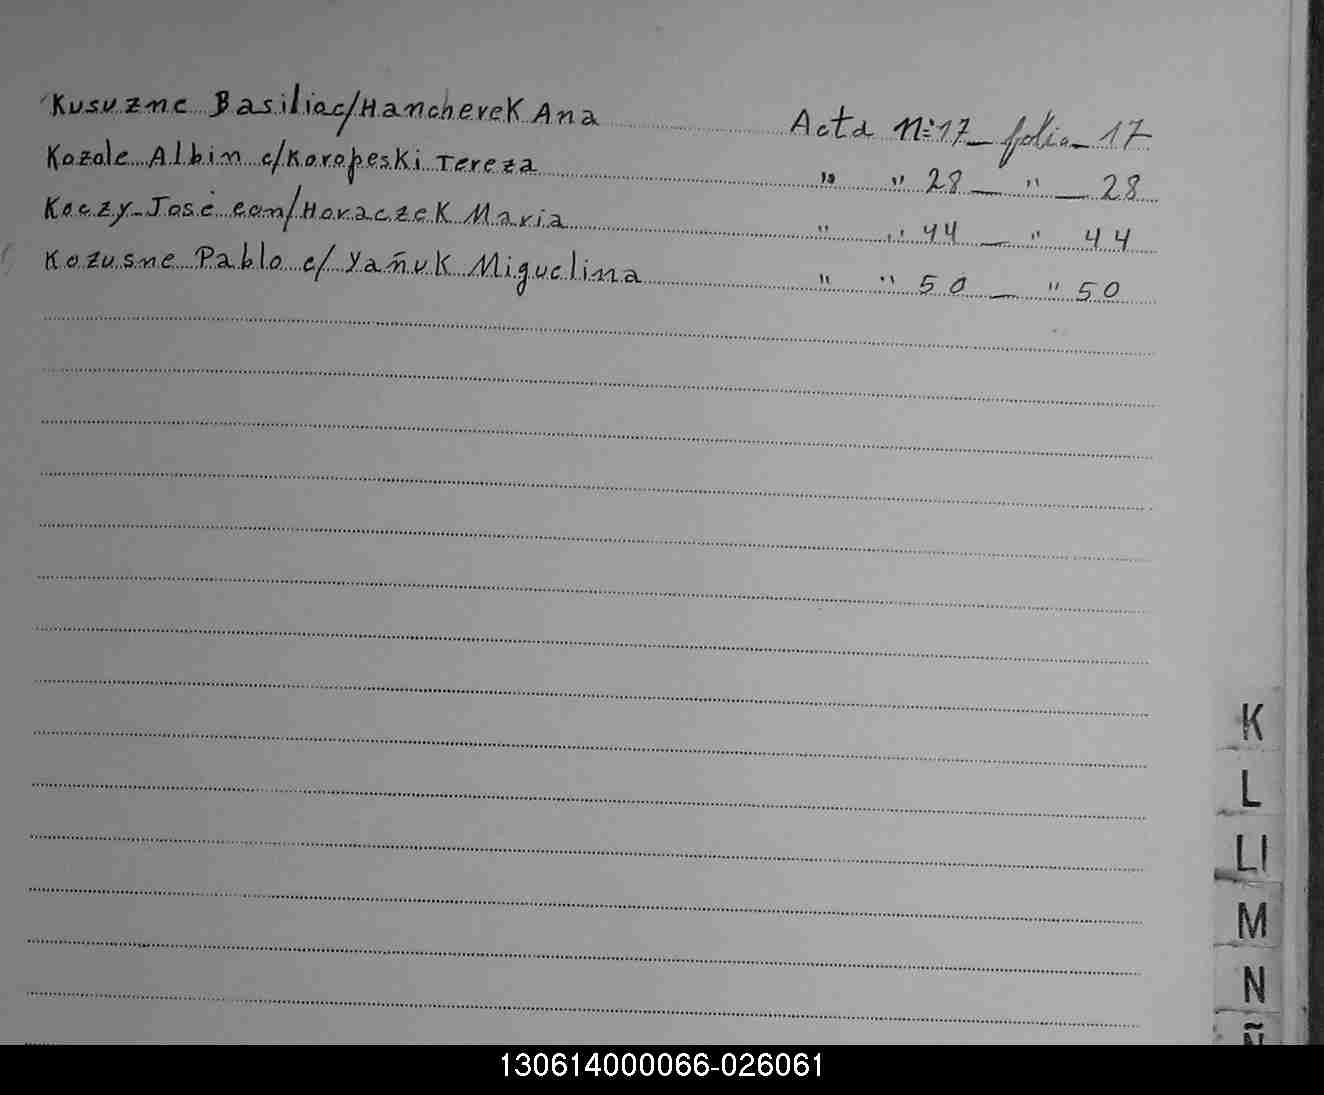 Kusuzne Basilia c/Hancherek Ana Acta N:17 _ folia _ 17
Kozale Albin c/Koropeski Tereza " " 28 _ " _ 28
Koczy José con/Horaczek Maria " " 44 _ " 44
Kozusne Pablo c/ Yañuk Miguelina " " 50 _ " 50
K
L
Ll
M
N
Ñ
130614000066-026061